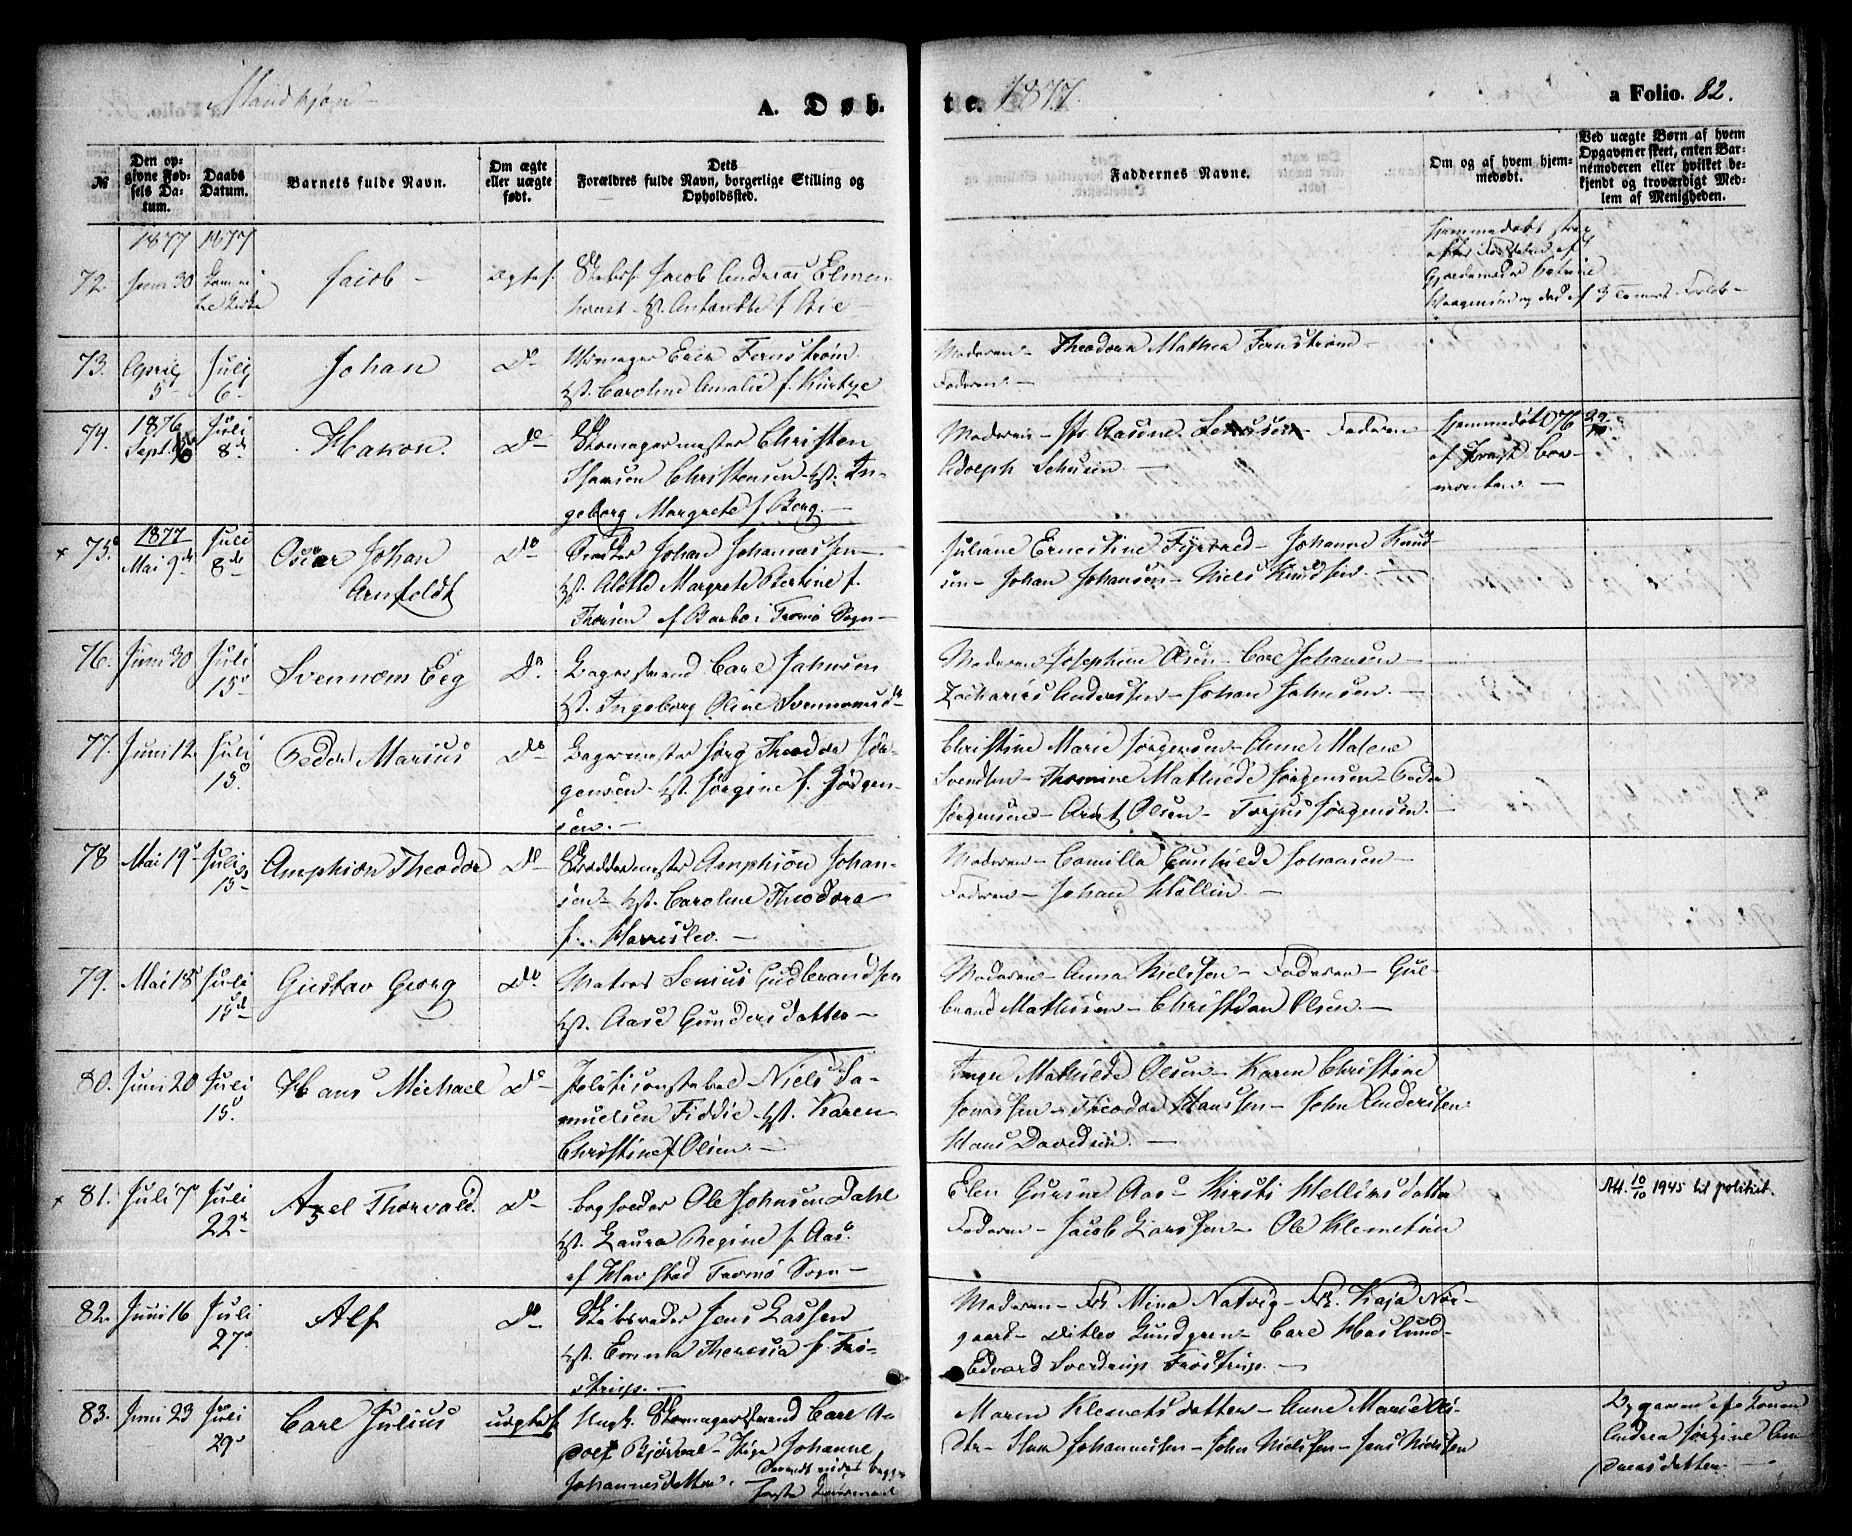 Mandkjøn
A. Døb-
te. 1877.
a Folio. 82.
№
Den op-
givne Fød-
sels Da-
tum.
Daabs
Datum.
Barnets fulde Navn.
Om ægte
eller uægte
født.
Dets
Forældres fulde Navn, borgerlige Stilling og
Opholdssted.
Faddernes Navne.
Om og af hvem hjem-
medøbt.
Ved uægte Børn af hvem
Opgaven er skeet, enten Bar-
nemoderen eller hvilket be-
kjendt og troværdigt Med-
lem af Menigheden.
1877 1877
72. Juni 30 Jacob – ægtef. Skibsf. Jacob Andreas Elmen-
horst
73. April 5 Juli 6. Johan Do
Erik Fernstrøm
Hst. Caroline Amalie f.
Moderen – Theodora Mathea Fernstrøm –
Faderen. –
74. 1876 Sept. Juli 8de Hakon. Do Skomagermester Christen
Hansen Christensen – Hst. In-
geborg Margrete f. Berg. –
Moderen – Faderen
Adolph –
Hjemmedøbt
af
x 75. 1877 Mai 9de Juli 8de Oscar Johan
Arnfeldt Do
Johan Johannessen –
Hst. Margrete Bertine f.
Thorsen af Barbo i Tromø Sogn –
Juliane Ernestine – Johanne Knud-
sen – Johan Johansen – Niels Knudsen. –
76. Juni 30 Juli 15. Svennom Eeg Do Bagersvend Carl Johnsen
Hst. Ingeborg Oline Svennomsdr
Moderen Josephine Olsen – Carl Johansen –
Zacharias Anderssen – Johan Johnsen. –
77. Juni 12. Juli 15. Peder Marius Do Bagermester Jørg Theodor Jør-
gensen – Hst. Jørgine f. Jørgen-
sen. –
Christine Marie Jørgensen – Anne Malene
Svendsen – Thomine Mathilde Jørgensen – Peder
Jørgensen – Arnt Olsen – Terjus Jørgensen. –
78 Mai 19 Juli 15 Amphion Theodor Do Skreddermester Amphion Johan-
sen – Hst. Caroline Theodora
f. Harrislev. –
Moderen – Camilla Gunhilde Johansen –
Faderen – Johan Wollin. –
79. Mai 18 Juli 15de Gustav Georg Do Matros Senius Gudbrandsen
Hst. Aase Gundersdatter –
Moderen – Anna Nielssen – Faderen – Gul-
brand Mathisen – Christian Olsen. –
80. Juni 20 Juli 15. Hans Michael Do Politiconstabel – Niels Sa-
muelsen Fiddie – Hst. Karen
Christine f. Olsen. –
Mathilde Olsen – Karen Christine
Jonassen – Theodor Hanssen – John Anderssen
Hans Davidsen. –
x 81. Juli 7 Juli 22 Axel Thorvald. Do Ole Johnsen Dahl
Hst. Laura Regine f. Aas.
af Havstad Tromø Sogn –
Elen Gurine Aas – Kirsti Hellissdatter
Faderen – Jacob Larssen – Ole Klemetsen
Att. 10/10 1945 til politiet.
82. Juni 16 Juli 27. Alf Do Skibsreder Jens Lassen
Hst. Emma Theresia f. Frø-
strup. –
Moderen – Frk. Mina Natvig – Frk. Kaja Nør-
gaard – Ditlev Lundgren – Carl Haslund –
Edvard Sverdrup Frøstrup. –
83. Juni 23 Juli 29 Carl Julius uægtef Ungk. Skomagersvend Carl A-
dolf Bjørval – Pige Johanne
Johannesdatter.
første Leiermaal
Maren Klemetsdatter – Anne Marie
dtr – Johannesen – John Nielssen – Jens Nielssen
Opgaven af
Andrea Jørgine An-
dreasdatter –